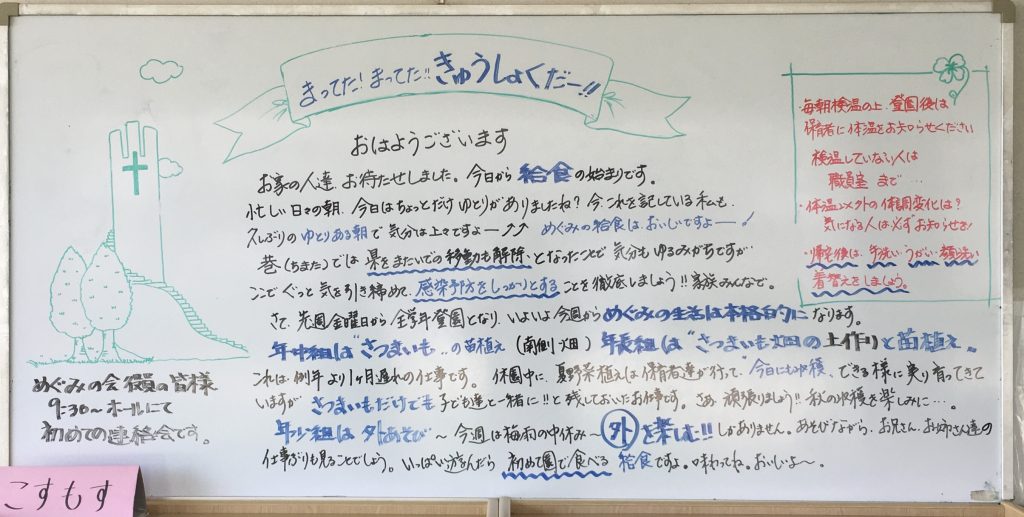 まってた!まってた!!きゅうしょくだー!!
おはようございます
お家の人達、お待たせしました。今日から給食の始まりです。
忙しい日々の朝、今日はちょっとだけゆとりがありましたね?今これを記している私も、
久しぶりのゆとりある朝で気分は上々ですよー↑↑ めぐみの給食は、おいしいですよー!
巷(ちまた)では県をまたいでの移動も解除、となったことで気分もゆるみがちですが
ここでぐっと気を引き締めて、感染予防をしっかりとすることを徹底しましょう!!家族みんなで。
さて、先週金曜日から全学年登園となり、いよいよ今週からめぐみの生活は本格的になります。
年中組は“さつまいも〟の苗植え(南側畑)年長組は“さつまいも畑の土作りと苗植え。
これは例年より1ヶ月遅れの仕事です。休園中に、夏野菜植えは保育者達が行って、今日にも収穫、できる様に実り育ってきて
いますが さつまいもだけでも子ども達と一緒に!!と残しておいたお仕事です。さあ、頑張りましょう!!秋の収穫を楽しみに…。
年少組は外あそび〜今週は梅雨の中休み〜外を楽しむ!!しかありません。あそびながら、お兄さん、お姉さん達の
仕事ぶりも見ることでしょう。いっぱい遊んだら初めて園で食べる給食ですよ。味わってね。おいしいよ〜。
めぐみの会 役員の皆様
9:30〜ホールにて
初めての連絡会です。
・毎朝検温の上、登園後は
保育者に体温をお知らせください
検温していない人は
職員室まで…
・体温以外の体調変化は?
気になる人は必ずお知らせを!
・帰宅後は、手洗い、うがい、顔洗い
着替えをしましょう。
こすもす